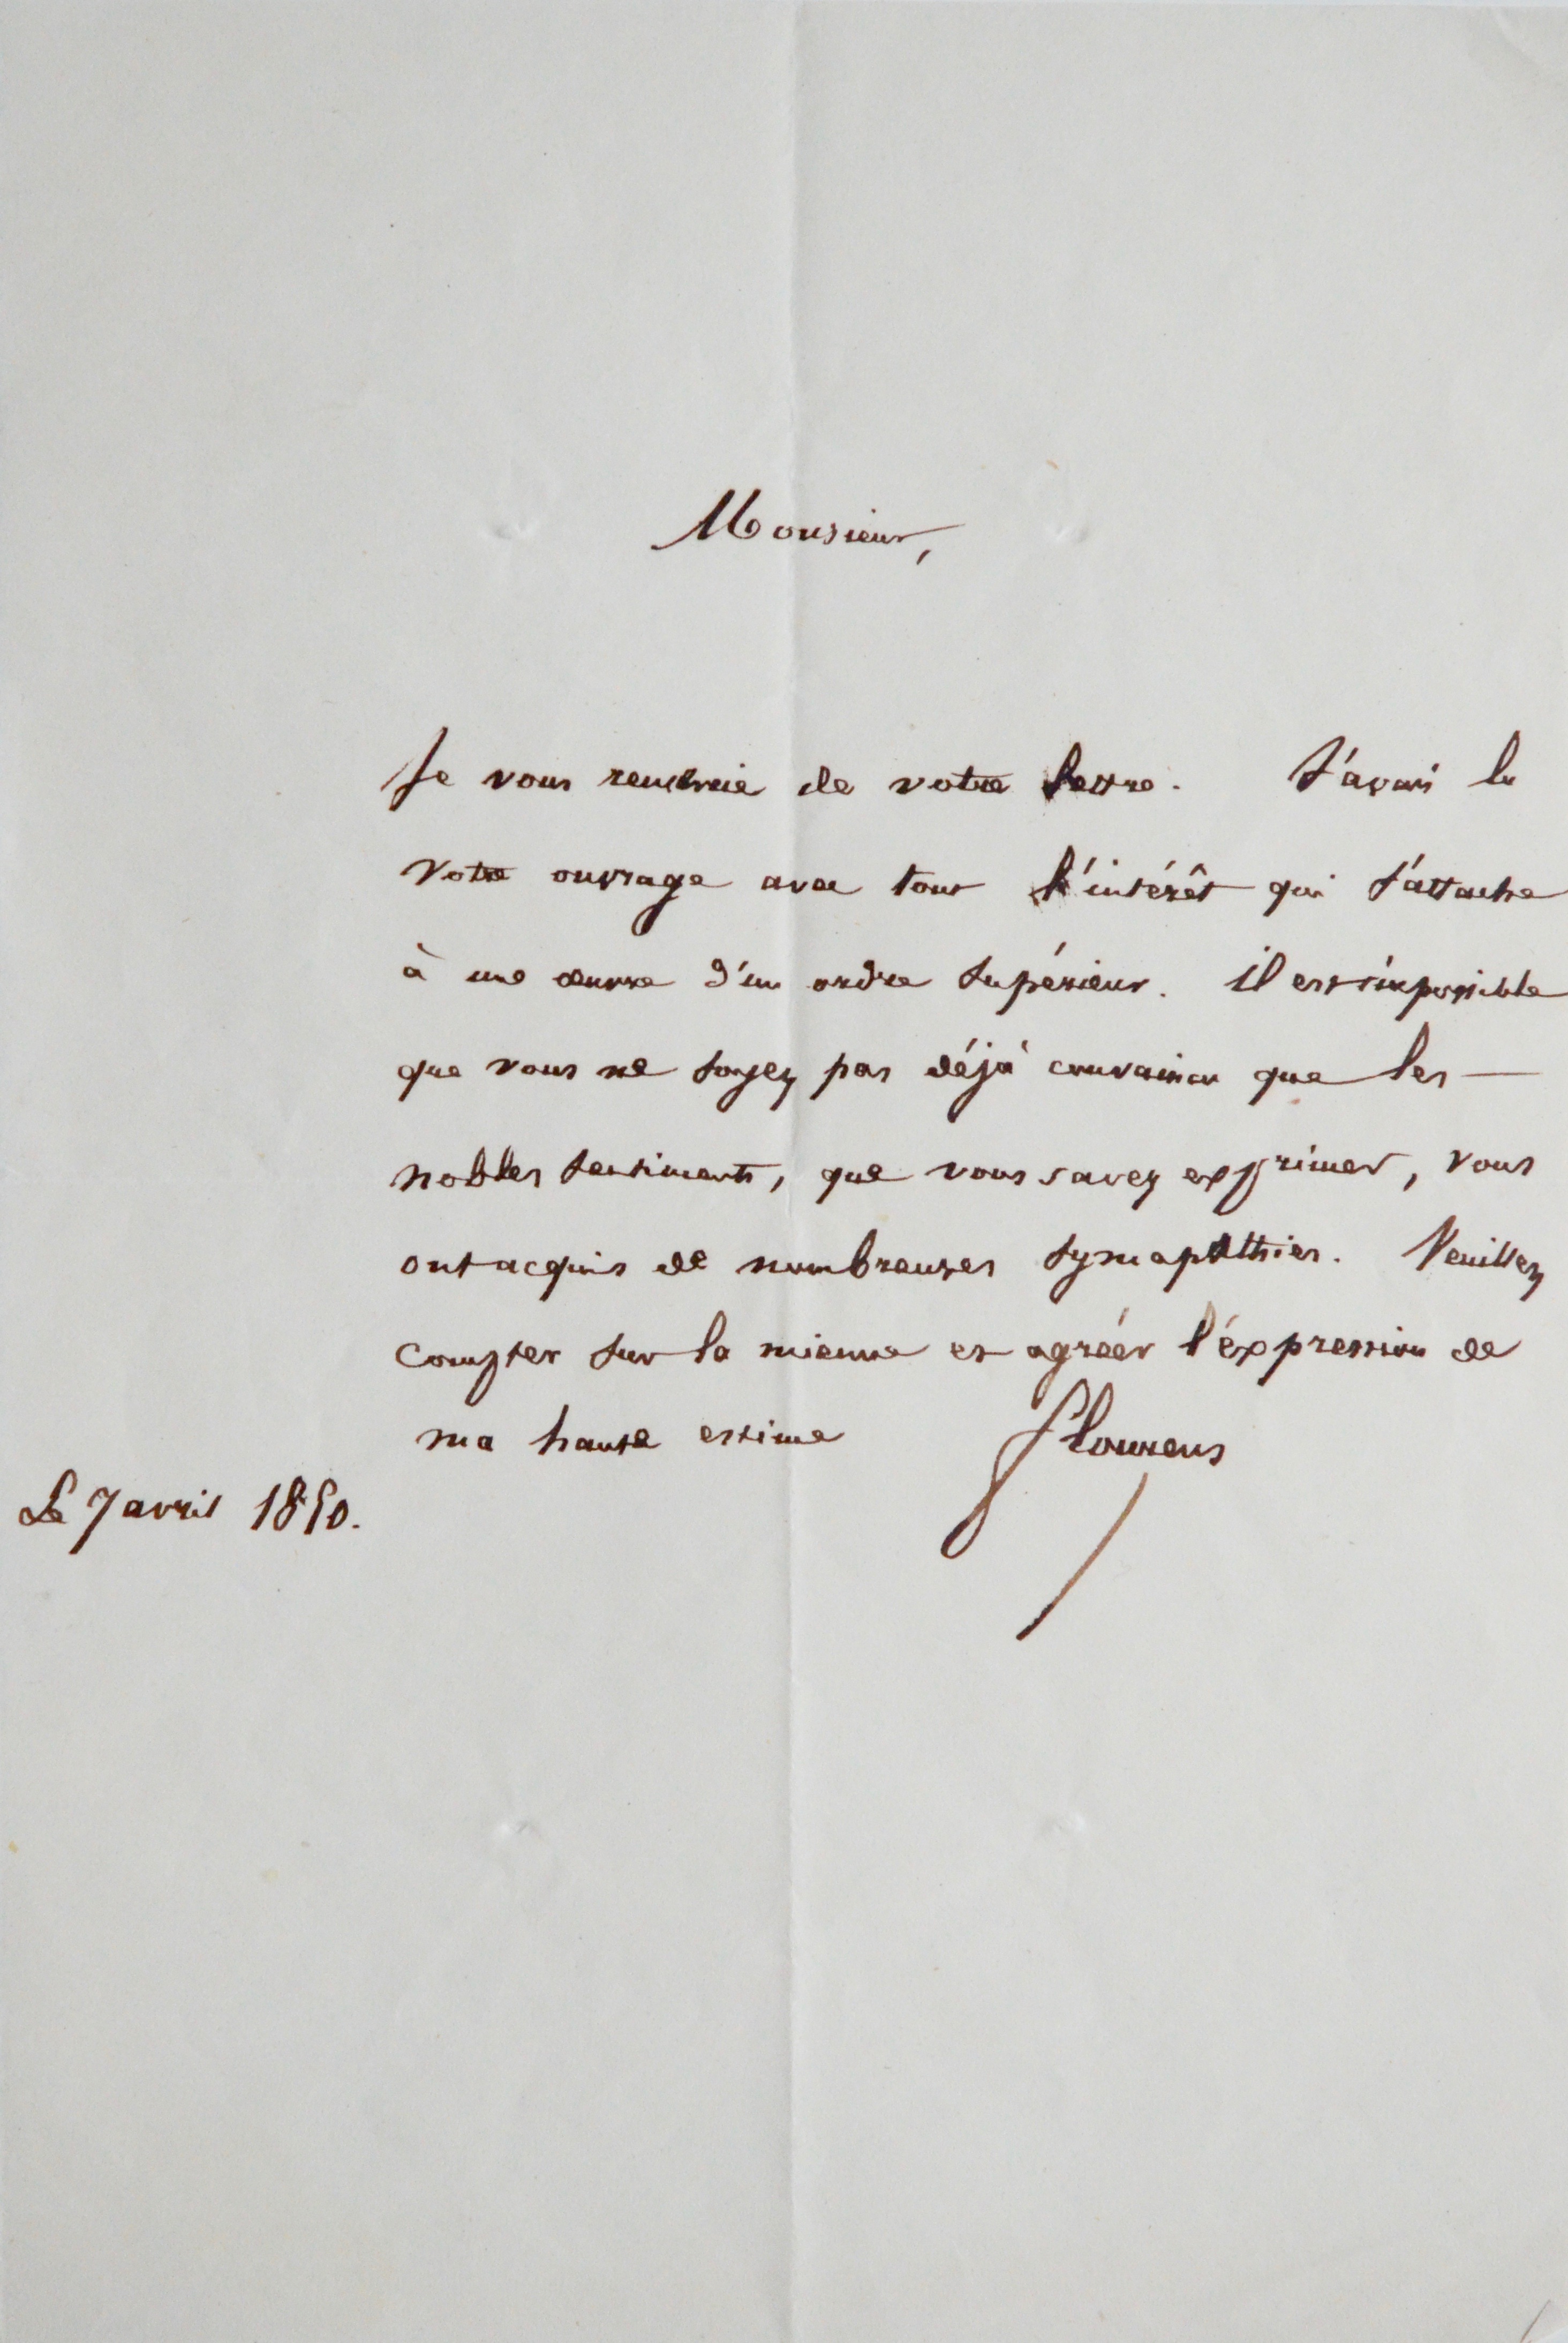 Monsieur,
Je vous remercie de votre lettre. J'avais lu
votre ouvrage avec tout l'intérêt qui s'attache
à une œuvre d'un ordre supérieur. il est impossible
que vous ne soyez pas déjà convaincu que les —
nobles sentiments, que vous savez exprimer, vous
ont acquis de nombreuses symapathies. Veuillez
compter sur la mienne et agréér l'éxpression de
ma haute estime Flourens
Le 7 avril 1850.